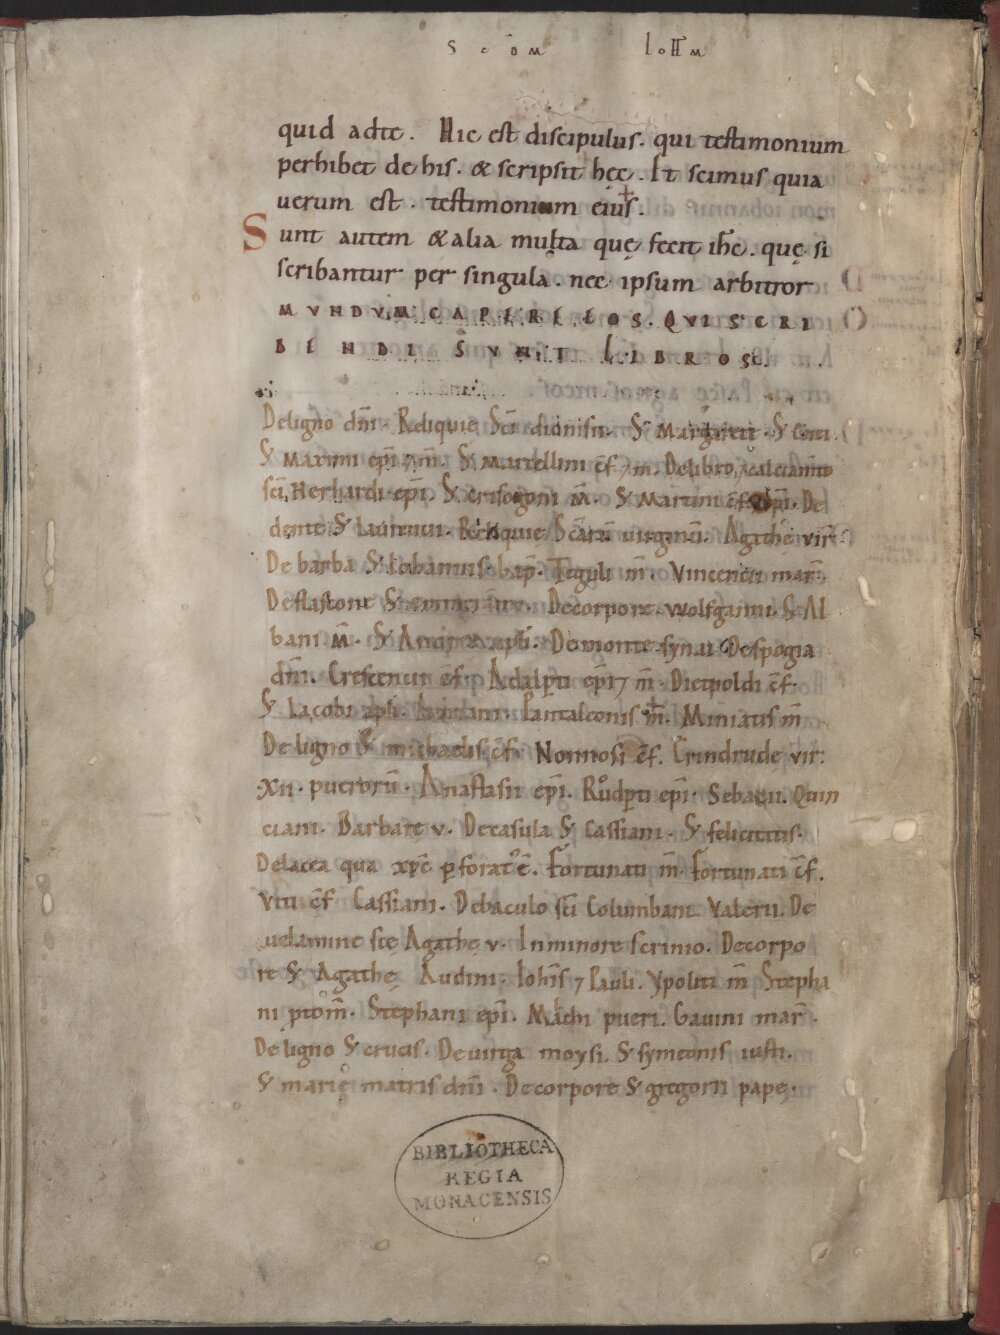 SCDM IOHM
quid adte. Hic est discipulus. qui testimonium
perhibet de his. & scripsit hęc. Et scimus quia
uerum est. testimonium eius.
Sunt autem & alia multa quę fecit ihc. quę si
scribantur per singula. nec ipsum arbitror
MVNDVM CAPERE EOS. QVI SCRI
BENDI SVNT LIBROS.
De ligno dnī. Reliquię Scī dionisii. S' Margarete. S'
S' Maximi epī 7 m̄. S' Marcellini c̄f. 7 m̄. De libro, 7 calciamto
scī Herhardi epī. S' crisogoni m̄. S' Martini c̄f. epī. De
dente S' Laurentii. Reliquię Scārū uirginū. Agathę vir̄.
De barba S' Iohannis. bap̄. Teguli m̄. Vincencii mar̄.
De flastone S' Decorpore. wolfganni. S' Al
bani m̄. S' Andree apłi. De monte synai. Despogia
dnī. Crescentii c̄f. Adalpti epī 7 m̄. Dietpoldi c̄f.
S' Iacobi apłi. Pantaleonis m̄. Miniatis m̄
De ligno S' michaelis c̄f. Nonnosi c̄f. Gerindrude vir.
.XII. puerorū. Anastasii epī. Růdpti epī. Sebastii. Quin
ciani. Barbarę v. De casula S' Cassiani. S' felicitatis.
De lacea qua xpc pforat' ē. Fortunati m̄. Fortunati c̄f.
Viti c̄f Cassiani. De baculo scī Columbani. Valerii. De
uelamine scę Agathę v. In minore scrinio. De corpo
re S' Agathę Audini. Iohīs 7 Pauli. Ypoliti m̄ Stepha
ni ptom̄. Stephani epī. Machi pueri. Gauini mar̄.
De ligno S' crucis. De uirga moysi. S' symeonis iusti.
S' marię matris dnī. De corpore S' gregorii pape.
BIBLIOTHECA
REGIA
MONACENSIS